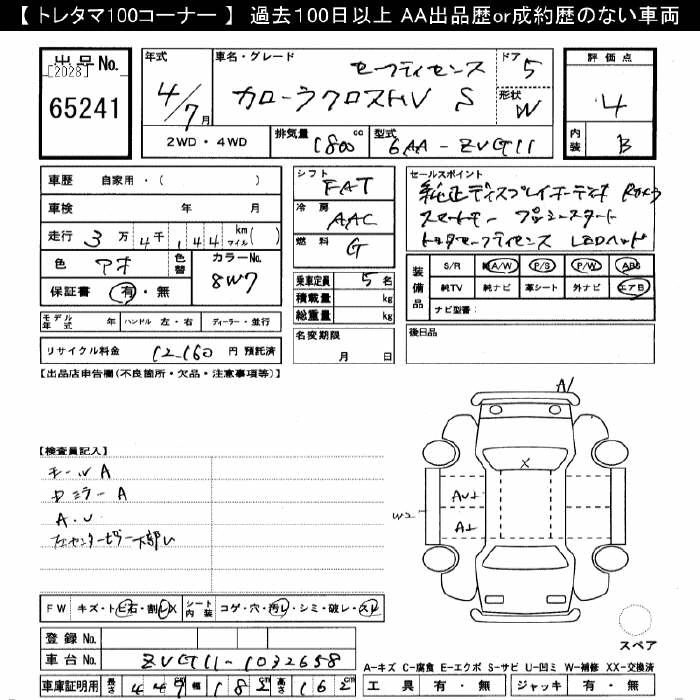 【 トレタマ100コーナー 】 過去100日以上 AA出品歴or成約歴のない車両
出品 No.
[2028]
65241
年式
4/7月
車名・グレード
セーフティセンス
カローラクロスHV S
ドア
5
形状
W
評価点
4
2WD・4WD
排気量
1800cc
型式
6AA-ZVG11
内装
B
車歴 自家用・( )
車検 年 月
走行 3万4千144 km マイル( )
色 アオ 色替
カラーNo.
8W7
保証書 有・無
モデル年式 年 ハンドル 左・右 ディーラー・並行
リサイクル料金 12160 円 預託済
シフト
FAT
冷房
AAC
燃料
G
乗車定員 5名
積載量 kg
総重量 kg
名変期限
月 日
セールスポイント
純正ディスプレイオーディオ Rカメラ
スマートキー プッシュスタート
トヨタセーフティセンス LEDヘッド
装備品
S/R 純A/W P/S P/W ABS
純TV 純ナビ 革シート 外ナビ エアB
ナビ型番:
後日品
【出品店申告欄(不良箇所・欠品・注意事項等)】
【検査員記入】
モールA
ロミラーA
A.U
左センターピラー下部U
A
X
AU1
A1
W2
FW キズ・トビ石・割レX
シート内装 コゲ・穴・汚レ・シミ・破レ・スレ
登録 No.
車台 No. ZVG11-1032658
車庫証明用 長さ 449cm 幅 182cm 高さ 162cm
スペア
A-キズ C-腐食 E-エクボ S-サビ U-凹ミ W-補修 XX-交換済
工具 有・無 ジャッキ 有・無